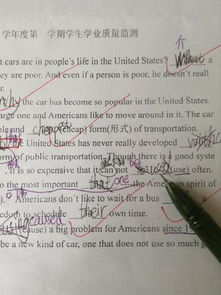 学年度第一学期学生学业质量监测
t cars are in people's life in the United States. Without a
ey are poor. And even if a person is poor, he doesn't reall
介
r. why the car has become so popular in the United States.
arge one and Americans like to move around in it. The car
end cheapest (cheap) form(形式) of transportation.
United States has never really developed
rm of public transportation. Though there is a good syste
it is so expensive that it can not (use) often.
o the most important that one the American spirit of
Americans don't like to wait for a bus
edom to schedule their own time.
(cause) a big problem for Americans since 1
be a new kind of car, one that does not use so much g